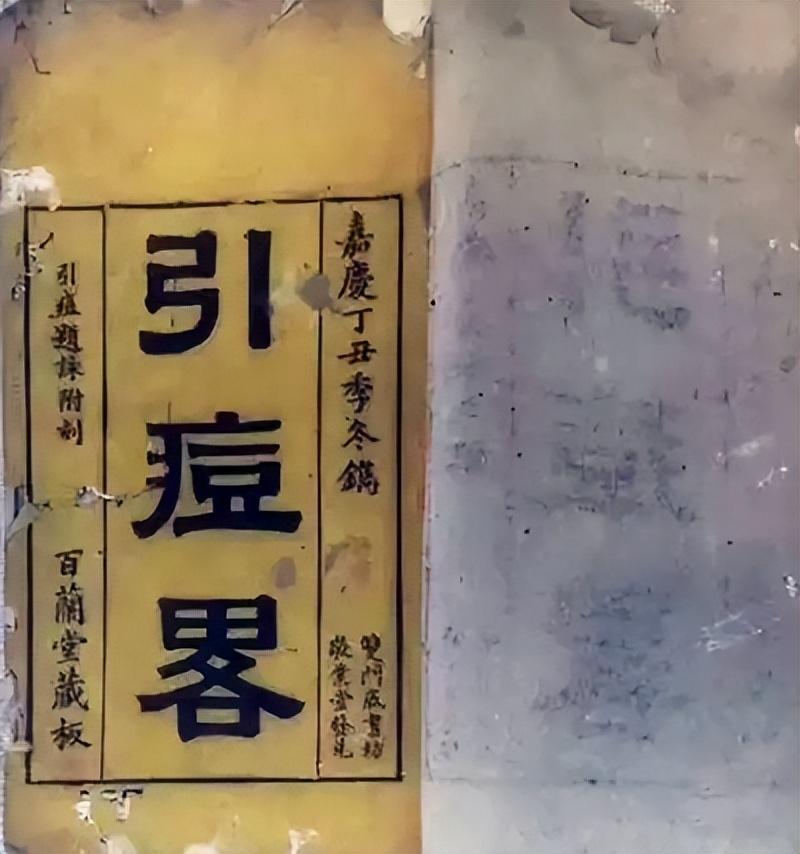 嘉慶丁丑季冬鐫
雙門底書坊
敬業堂發兌
引痘畧
引痘題詠附刻
百蘭堂藏板